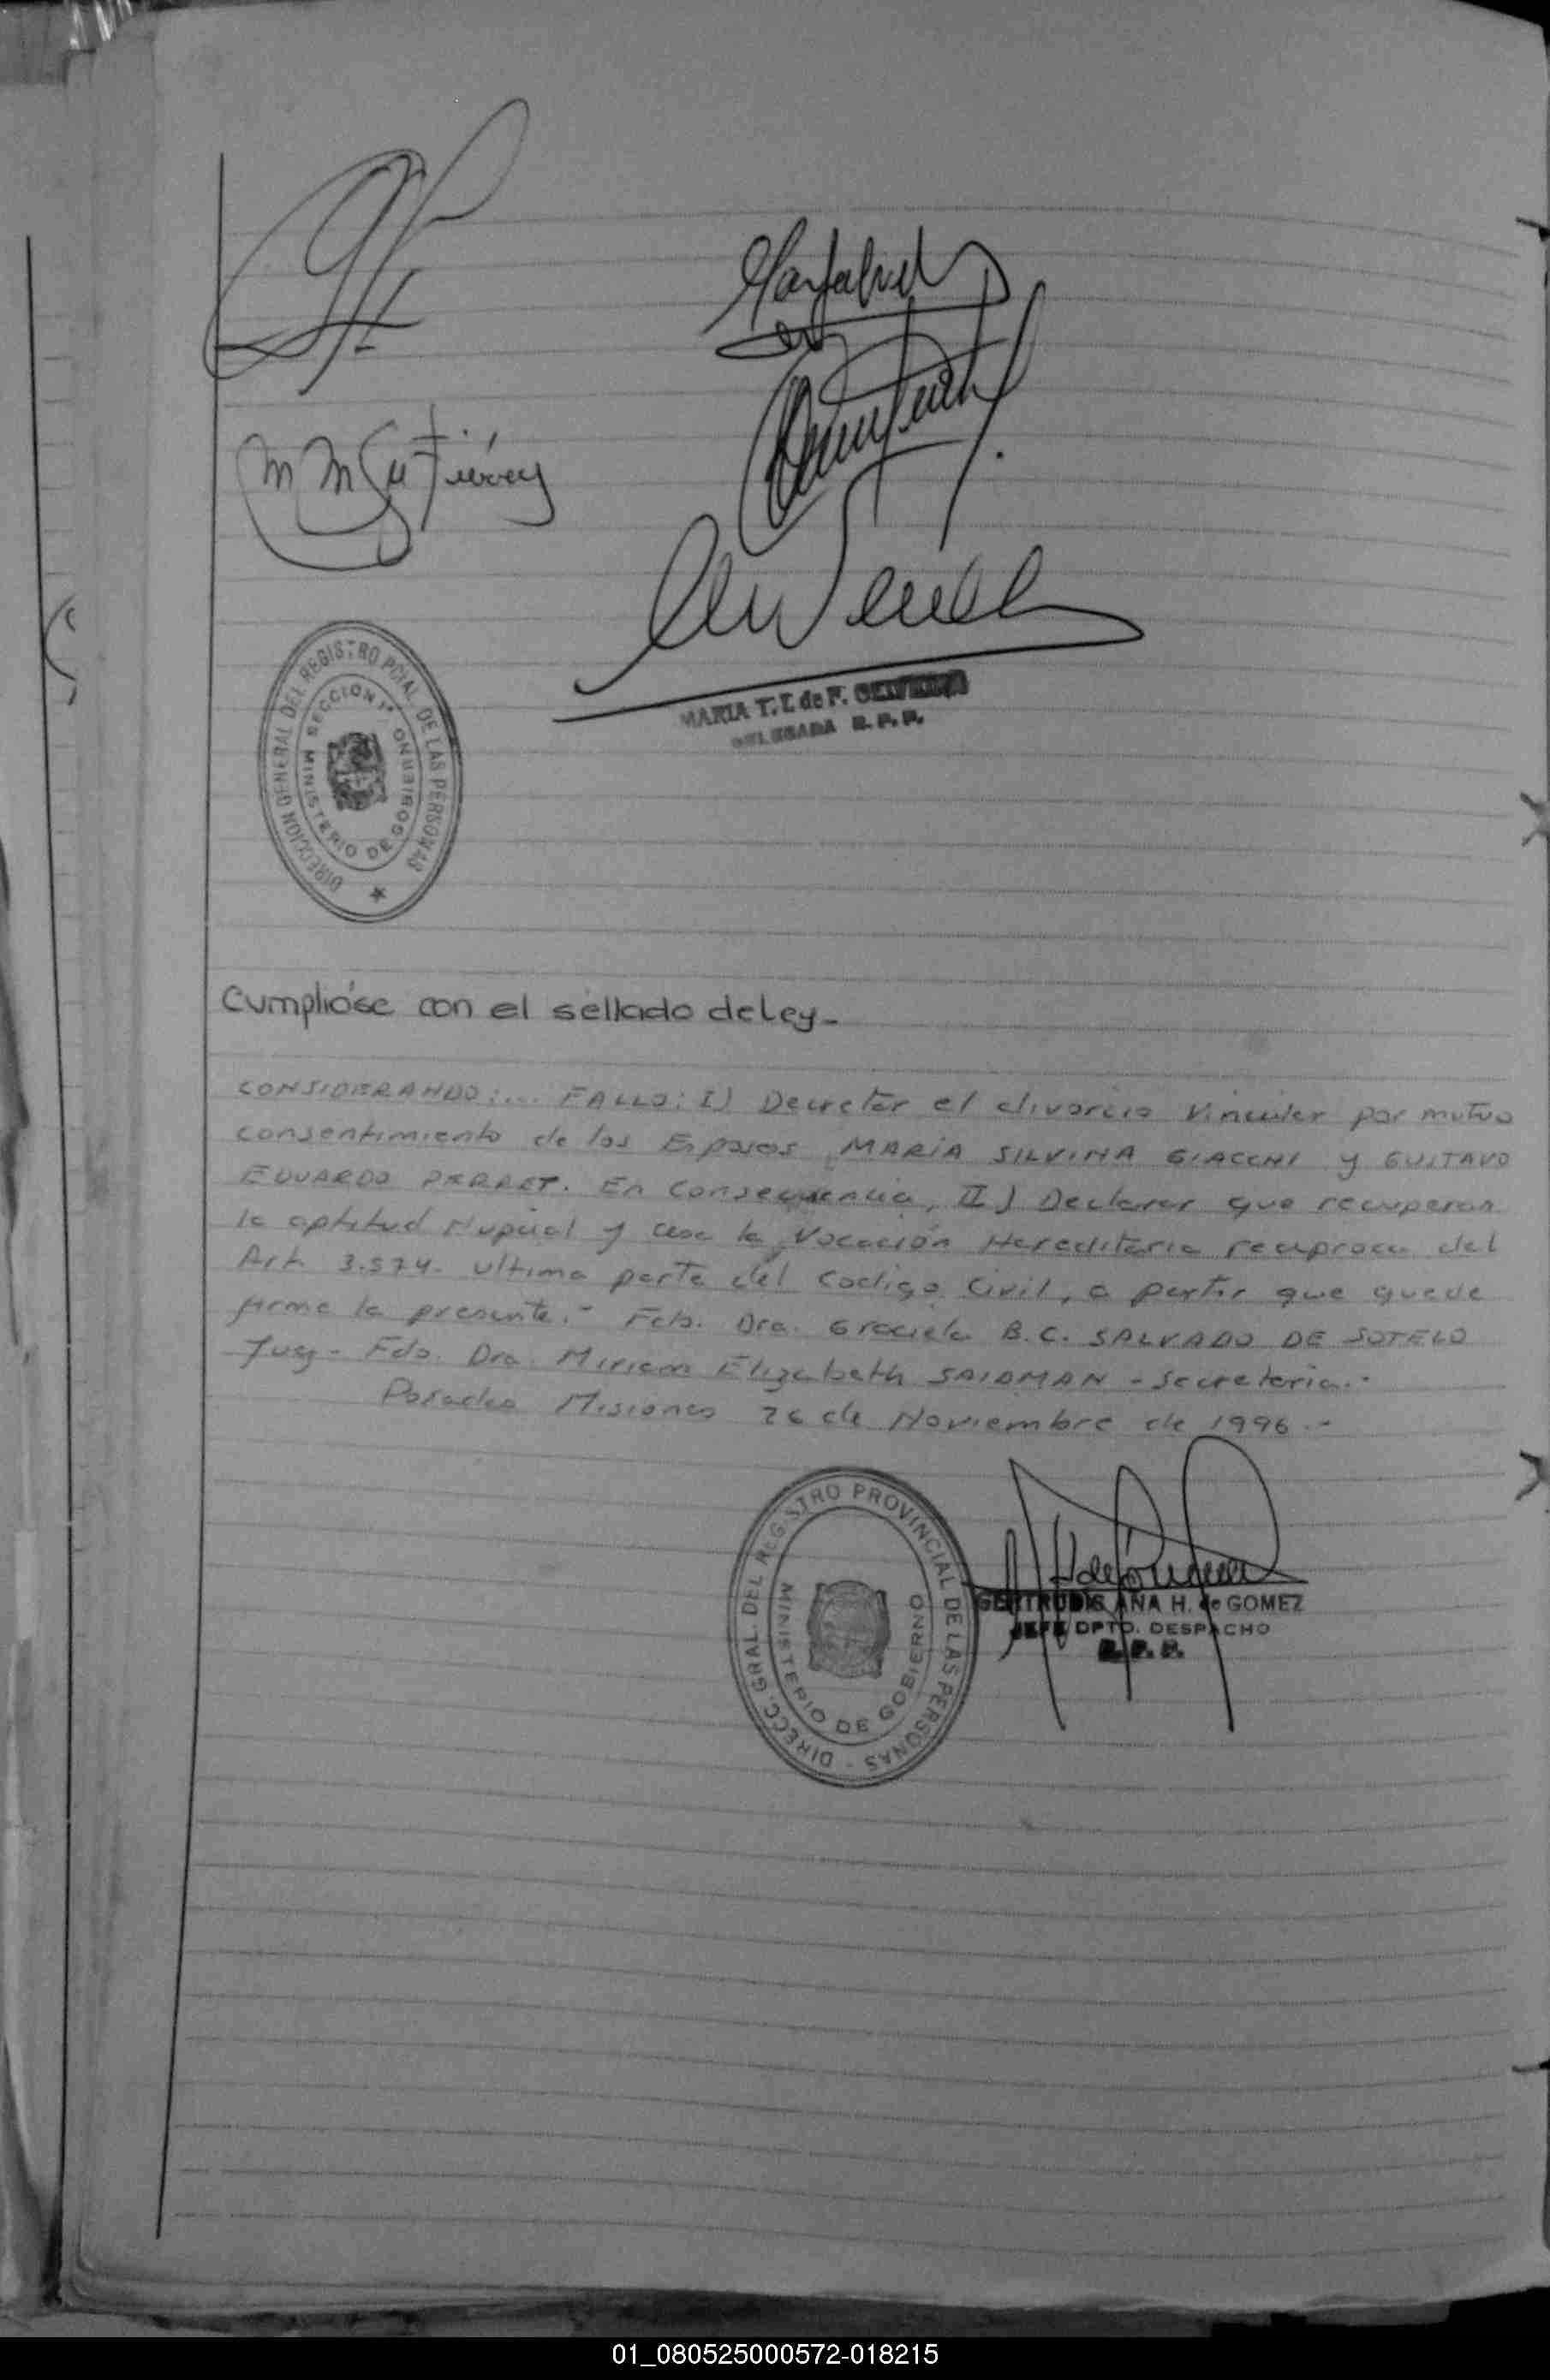 M M Gutiérrez
DIRECCION GENERAL DEL REGISTRO PCIAL. DE LAS PERSONAS
SECCION 1ª
MINISTERIO DE GOBIERNO
MARIA T. I. de F.
DELEGADA R. P. P.
Cumplióse con el sellado de Ley-
CONSIDERANDO:... FALLO: I) Decretar el divorcio Vincular por mutuo
consentimiento de los Esposos MARIA SILVINA GIACCHI y GUSTAVO
EDUARDO PERRET. En Consecuencia, II) Declarar que recuperan
la aptitud Nupcial y cese la Vocación Hereditaria reciproca del
Art. 3.574- ultima parte del Codigo Civil, a partir que quede
firme la presente.- Fdo. Dra. Graciela B.C. SALVADO DE SOTELO
Juez- Fdo. Dra. Miriam Elizabeth SAIDMAN - Secretaria.-
Posadas Misiones 26 de Noviembre de 1996.-
DIRECC. GRAL. DEL REGISTRO PROVINCIAL DE LAS PERSONAS -
MINISTERIO DE GOBIERNO
GERTRUDIS ANA H. de GOMEZ
JEFE DPTO. DESPACHO
R. P. P.
01_080525000572-018215